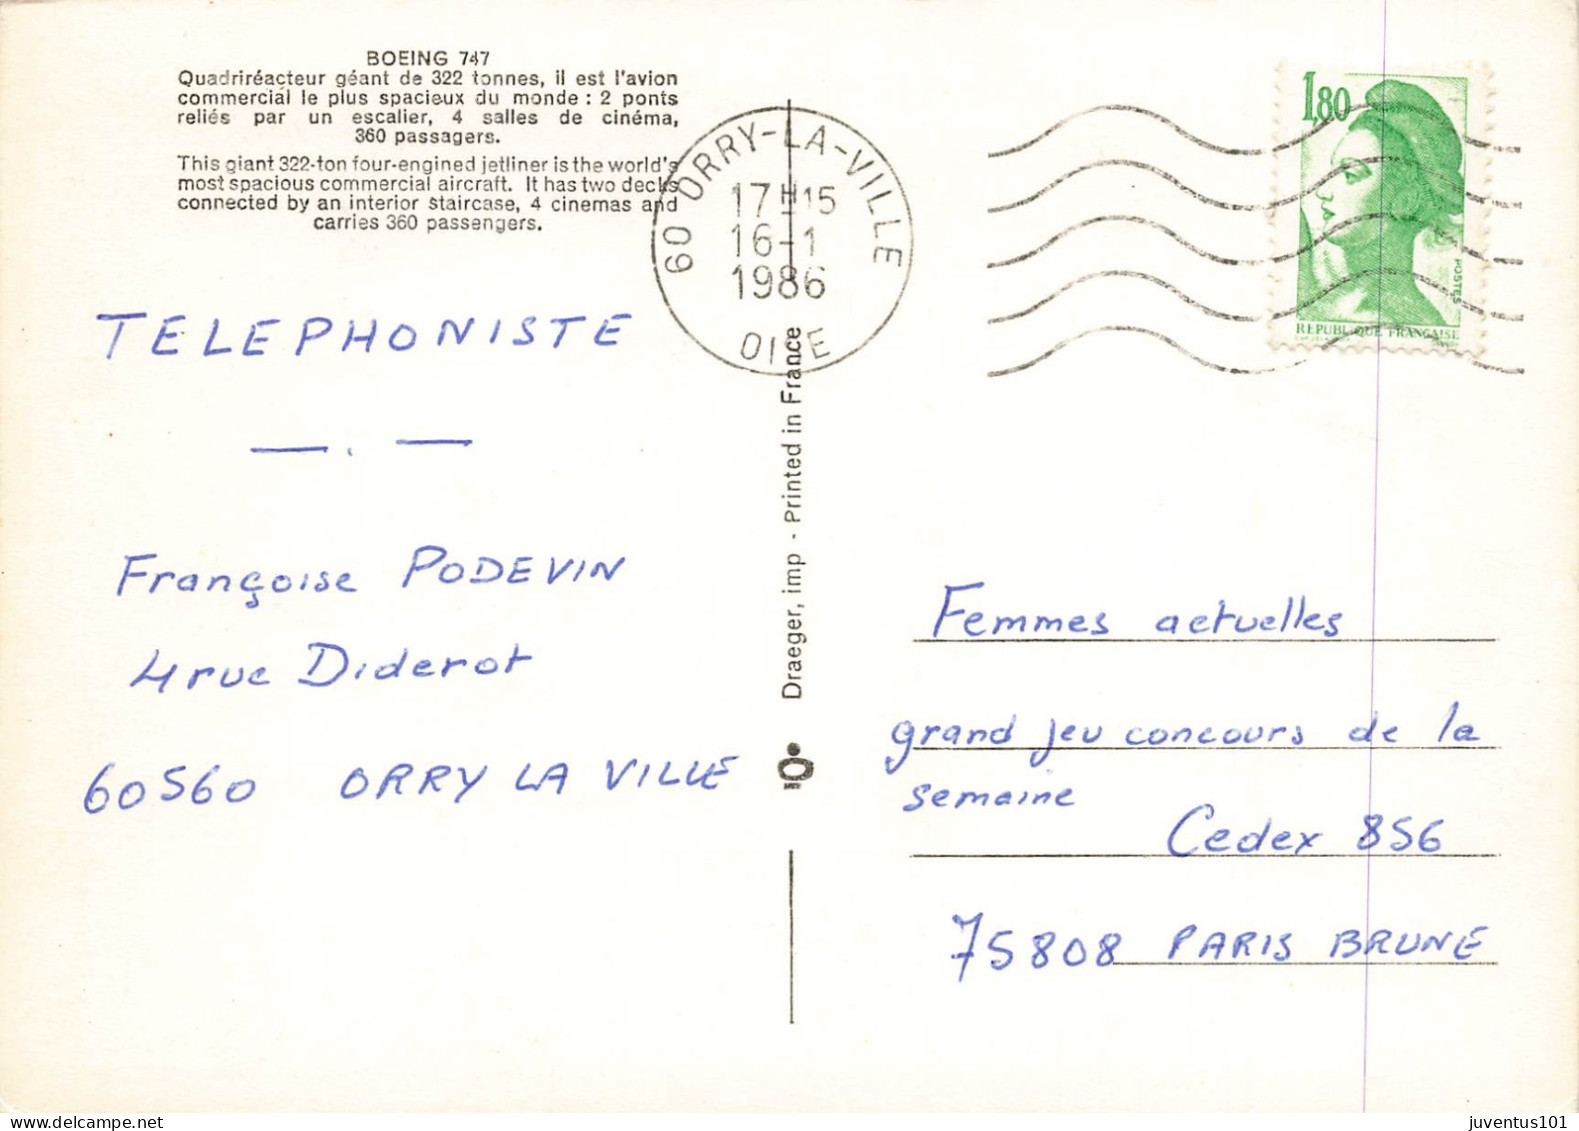 BOEING 747
Quadriréacteur géant de 322 tonnes, il est l'avion
commercial le plus spacieux du monde : 2 ponts
reliés par un escalier, 4 salles de cinéma,
360 passagers.
This giant 322-ton four-engined jetliner is the world's
most spacious commercial aircraft. It has two decks
connected by an interior staircase, 4 cinemas and
carries 360 passengers.
TELEPHONISTE
— . —
Françoise PODEVIN
4 rue Diderot
60560 ORRY LA VILLE
60 ORRY-LA-VILLE
17H15
16-1
1986
OISE
Draeger, imp - Printed in France
1,80
POSTES
REPUBLIQUE FRANÇAISE
Femmes actuelles
grand jeu concours de la
semaine
Cedex 856
75808 PARIS BRUNE
juventus101